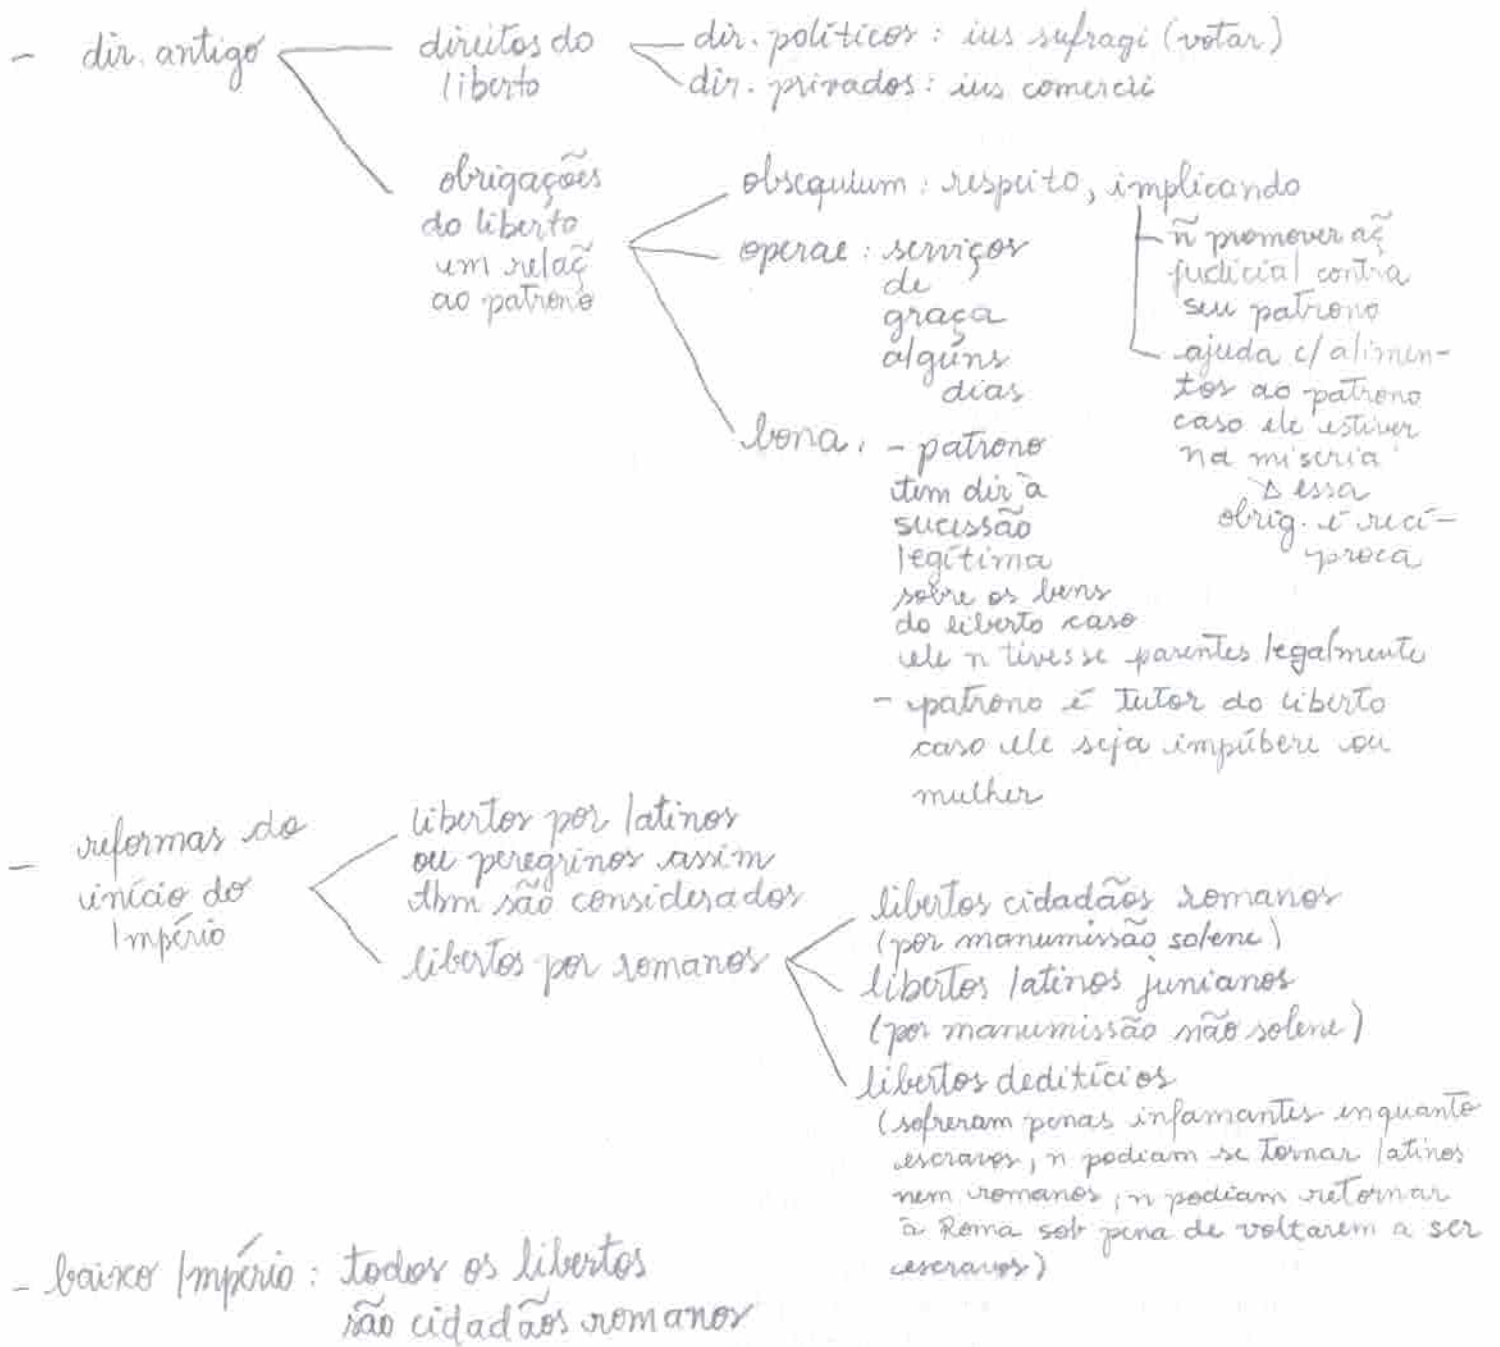 - dir. antigo
direitos do
liberto
dir. políticos: ius sufragi (votar)
dir. privados: ius comercii
obrigações
do liberto
em relaç̃
ao patrono
obsequium: respeito, implicando
ñ promover aç̃
judicial contra
seu patrono
ajuda c/ alimen-
tos ao patrono
caso ele estiver
na miséria
Δ essa
obrig. é recí-
proca
operae: serviços
de
graça
alguns
dias
bona: - patrono
tem dir à
sucessão
legítima
sobre os bens
do liberto caso
ele n tivesse parentes legalmente
- patrono é tutor do liberto
caso ele seja impúbere ou
mulher
- reformas do
início do
Império
libertos por latinos
ou peregrinos assim
tbm são considerados
libertos por romanos
libertos cidadãos romanos
(por manumissão solene)
libertos latinos junianos
(por manumissão não solene)
libertos dediticios
(sofreram penas infamantes enquanto
escravos, n podiam se tornar latinos
nem romanos, n podiam retornar
à Roma sob pena de voltarem a ser
escravos)
- baixo Império: todos os libertos
são cidadãos romanos